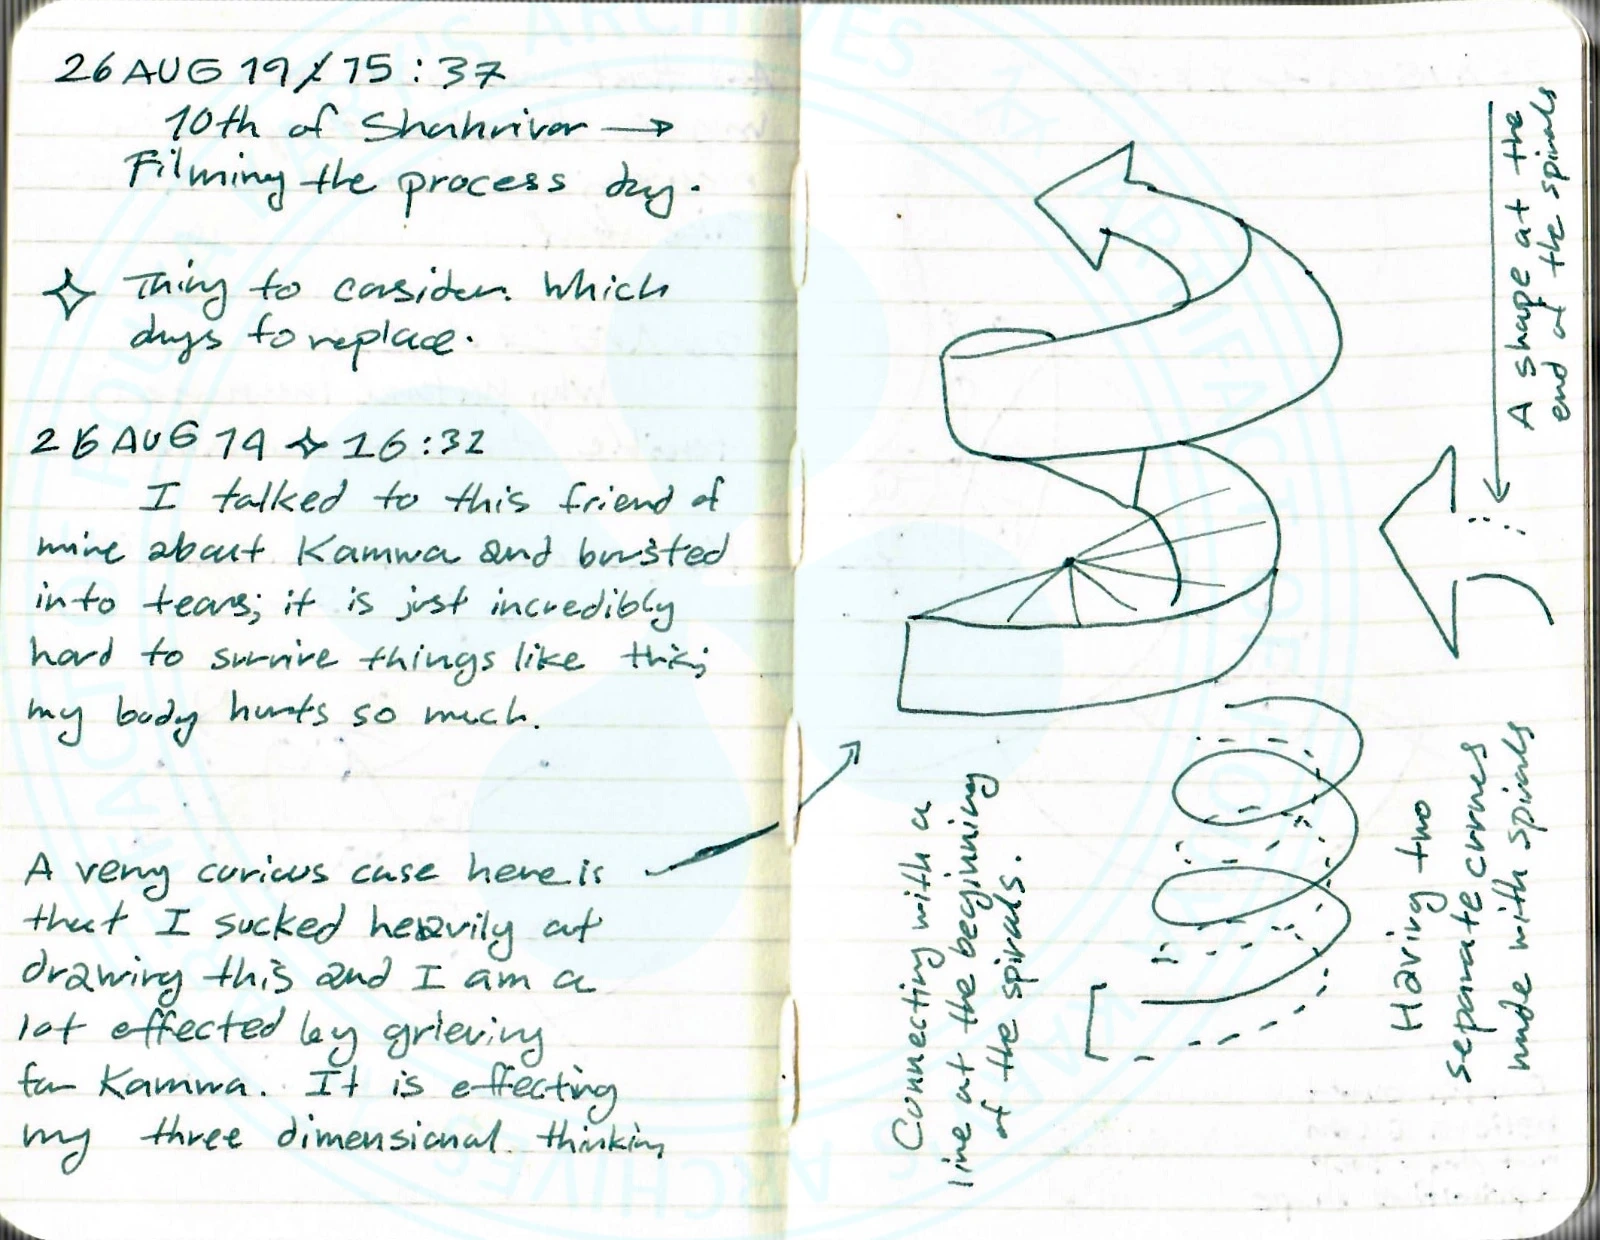 26 AUG 19 / 15:37
10th of Shahrivar →
Filming the process day.
Thing to consider. Which
days to replace.
26 AUG 19 ✧ 16:32
I talked to this friend of
mine about Kamwa and bursted
into tears; it is just incredibly
hard to survive things like this;
my body hurts so much.
A very curious case here is
that I sucked heavily at
drawing this and I am a
lot effected by grieving
for Kamwa. It is effecting
my three dimensional thinking
A shape at the
end of the spirals
Connecting with a
line at the beginning
of the spirals.
Having two
separate curves
made with spirals